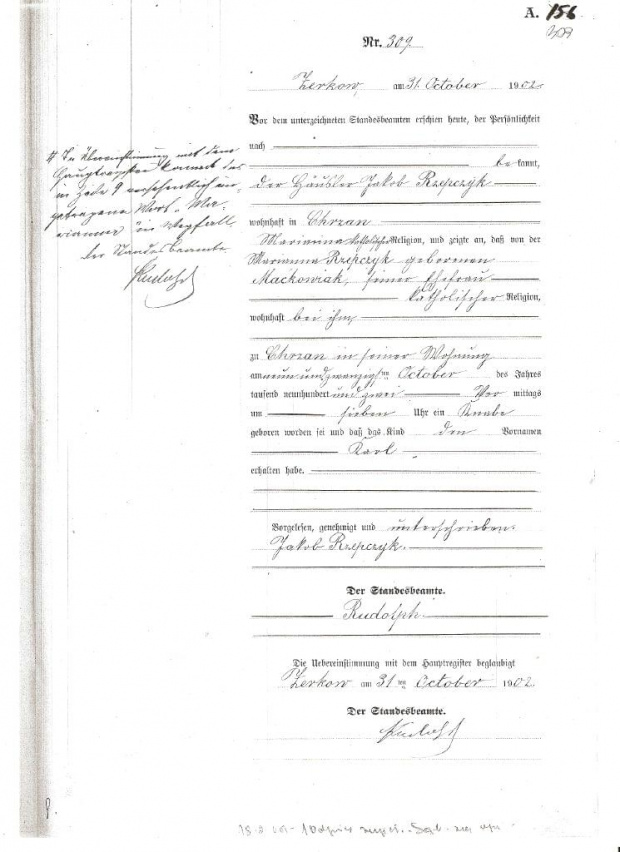 A. 156
309
Nr. 309
Zerkow, am 31. October 1902
Vor dem unterzeichneten Standesbeamten erschien heute, der Persönlichkeit
nach
bekannt,
der Häusler Jakob Rzepczyk
wohnhaft in Chrzan
Marianna katholischer Religion, und zeigte an, daß von der
Marianna Rzepczyk geborenen
Mackowiak, seiner Ehefrau
katholischer Religion,
wohnhaft bei ihm,
zu Chrzan in seiner Wohnung
am neun und zwanzigsten October des Jahres
tausend neunhundert und zwei Vor mittags
um sieben Uhr ein Knabe
geboren worden sei und daß das Kind den Vornamen
Karl
erhalten habe.
Vorgelesen, genehmigt und unterschrieben.
Jakob Rzepczyk.
Der Standesbeamte.
Rudolph.
Die Uebereinstimmung mit dem Hauptregister beglaubigt
Zerkow am 31ten October 1902
Der Standesbeamte.
Rudolph
# In Übereinstimmung mit dem
Hauptregister kommt das
in Zeile 9 versehentlich ein-
getragene Wort "Ma-
rianna" in Wegfall.
Der Standesbeamte
Rudolph